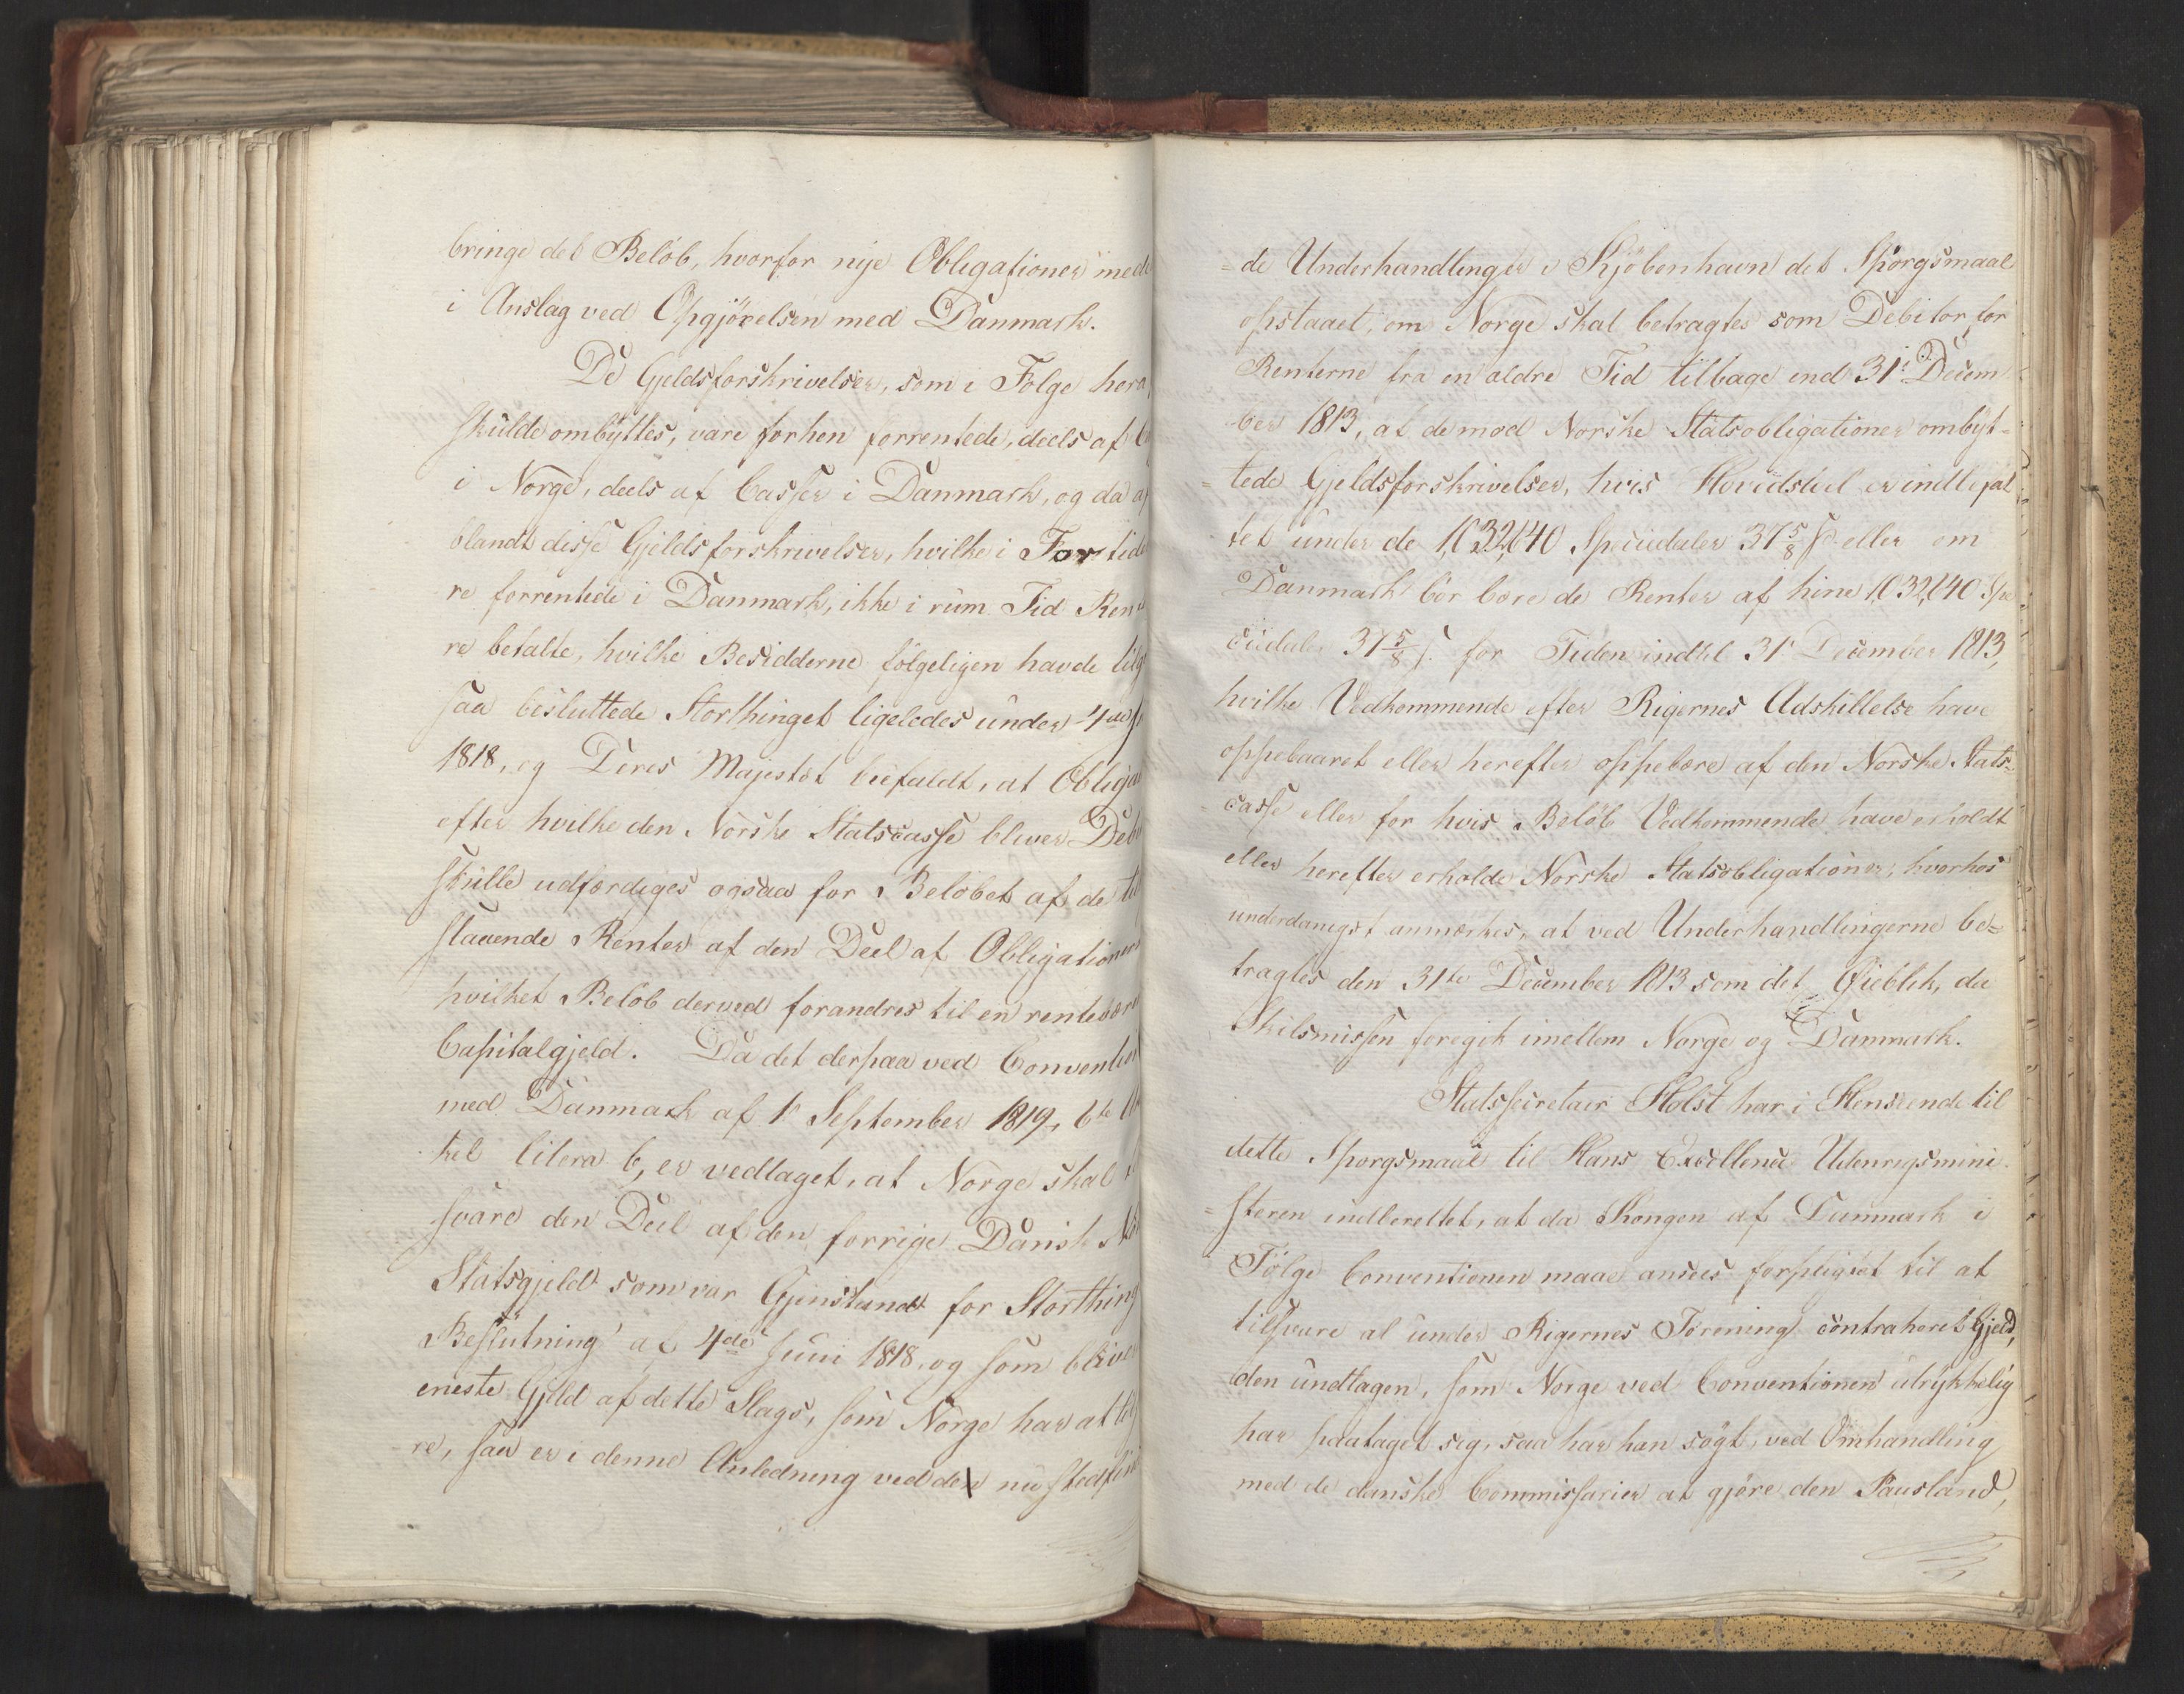 bringe det Beløb, hvorfor nye Obligationer mede
i Anslag ved Opgjørelsen med Danmark.
De Gjeldsforskrivelser, som i Følge hera
skulde ombyttes, vare forhen forrentede, deels af C
i Norge, deels af Casser i Danmark, og da af
blandt disse Gjeldsforskrivelser, hvilke i Fortide
re forrentede i Danmark, ikke i rum Tid Ren
re betalte, hvilke Besidderne følgeligen havde tilg
saa besluttede Storthinget ligeledes under 4de J
1818, og Deres Majestæt biefaldt, at Obliga
efter hvilke den Norske Statscasse bliver Deb
skulle udfærdiges ogsaa for Beløbet af de til
staaende Renter af den Deel af Obligationer
hvilket Beløb derved forandres til en rentebære
Capitalgjeld. Da det derpaa ved Convention
med Danmark af 1 September 1819, 6te
kel litera b, er vedtaget, at Norge skal
svare den Deel af den forrige Dansk No
Statsgjeld som var Gjenstand for Storthing
Beslutning af 4de Juni 1818, og som bliver
eneste Gjeld af dette Slags, som Norge har at til
re, saa er i denne Anledning ved den nu stedfin
=de Underhandlinger i Kjøbenhavn det Spørgsmaal
opstaaet, om Norge skal betragtes som Debitor for
Renterne fra en ældre Tid tilbage end 31 Decem
ber 1813, af de mod Norske Statsobligationer ombyt-
=tede Gjeldsforskrivelser, hvis Hovedstoel er indbefat
tet under de 1,032,640 Speciedaler 37 5/8 ß eller om
Danmark bør bære de Renter af hine 1,032,640 Spe
ciedaler 37 5/8 ß. for Tiden indtil 31 December 1813,
hvilke Vedkommende efter Rigernes Adskillelse have
oppebaaret eller herefter oppebære af den Norske Stats=
=casse eller for hvis Beløb Vedkommende have erholdt
eller herefter erholde Norske Statsobligationer, hvorhos
underdanigst anmærkes, at ved Underhandlingerne be=
tragtes den 31te December 1813 som det Øieblik, da
Skilsmissen foregik imellem Norge og Danmark.
Statssecretair Holst har i Henseende til
dette Spørgsmaal til Hans Excellence Udenrigsmini
=steren indberettet, at da Kongen af Danmark i
Følge Conventionen maae ansees forpligtet til at
tilsvare al under Rigernes Forening contraheret Gjeld,
den undtagen, som Norge ved Conventionen udtrykkelig
har paataget sig, saa har han søgt, ved Omhandling
med de danske Commissarier at gjøre den Paastand,